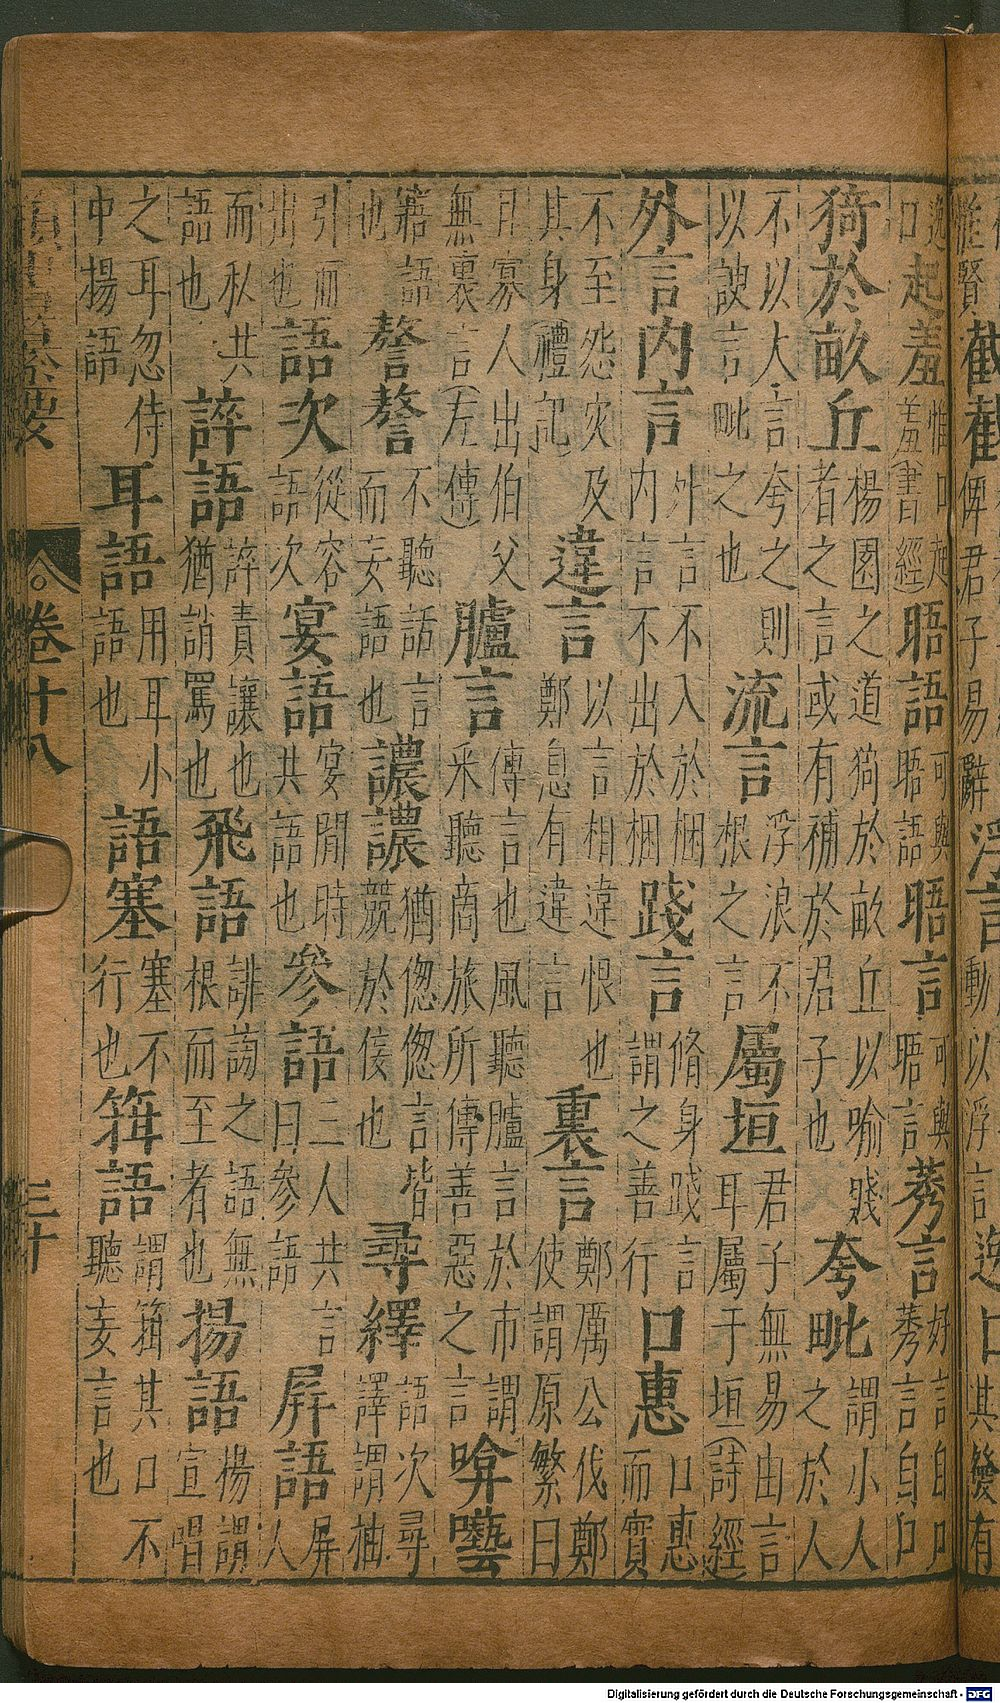 截截 俾君子易辭 浮言 動以浮言 逸口 其發有
逸口 起羞 惟口起羞(書經) 晤語 可與晤語 晤言 可與晤言 莠言 好言自口莠言自口
猗於畝丘 楊園之道猗於畝丘以喻賤者之言或有補於君子也 夸毗 謂小人之於人
不以大言夸之則以諛言毗之也 流言 浮浪不根之言 屬垣 君子無易由言耳屬于垣(詩經)
外言内言 外言不入於梱内言不出於梱 踐言 脩身踐言謂之善行 口惠 口惠而實
不至怨災及其身(禮記) 違言 以言相違恨也鄭息有違言 裏言 鄭厲公伐鄭使謂原繁曰
且寡人出伯父無裏言(左傳) 臚言 傳言也風聽臚言於市謂采聽商旅所傳善惡之言 囈
寱語也 謷謷 不聽話言而妄語也 譨譨 猶偬偬言皆競於佞也 尋繹 語次尋譯謂抽
引而出也 語次 從容語次 宴語 宴閒時共語也 參語 三人共言曰參語 屏語 屏人
而私共語也 誶語 誶責讓也猶誚罵也 飛語 誹謗之語無根而至者也 揚語 楊謂宣唱
之耳忽侍中揚語 耳語 用耳小語也 語塞 塞不行也 箝語 謂箝其口不聽妄言也
卷十八 三十
Digitalisierung gefördert durch die Deutsche Forschungsgemeinschaft - DFG